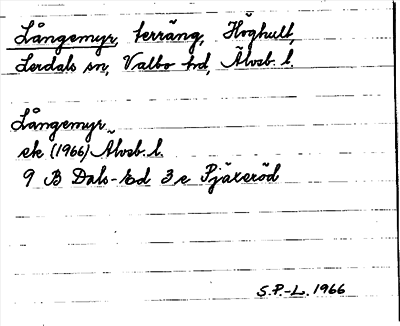 Långemyr, terräng, Höghult,
Lerdals sn, Valbo hd, Älvsb. l.
Långemyr
ek (1966) Älvsb. l.
9 B Dals-Ed 3 e Pjäxeröd
S.P-L. 1966